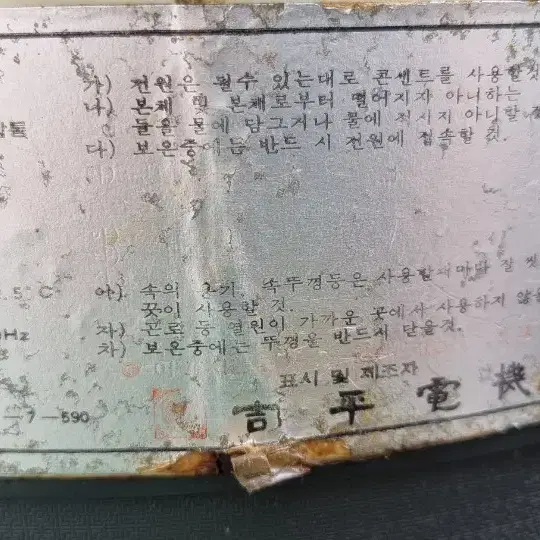 가) 전원은 될수 있는대로 콘센트를 사용할것
나) 본체 및 본체로부터 떨어지지 아니하는
들을 물에 담그거나 물에 적시지 아니할
다) 보온중에는 반드시 전원에 접속할 것.
5°C 아) 속의 용기, 속뚜껑등은 사용할때마다 잘 씻
꿋이 사용할 것.
Hz 자) 곤로 등 열원이 가까운 곳에서 사용하지 않을
차) 보온중에는 뚜껑을 반드시 닫을것.
표시 및 제조자
-7-590 吉平電機